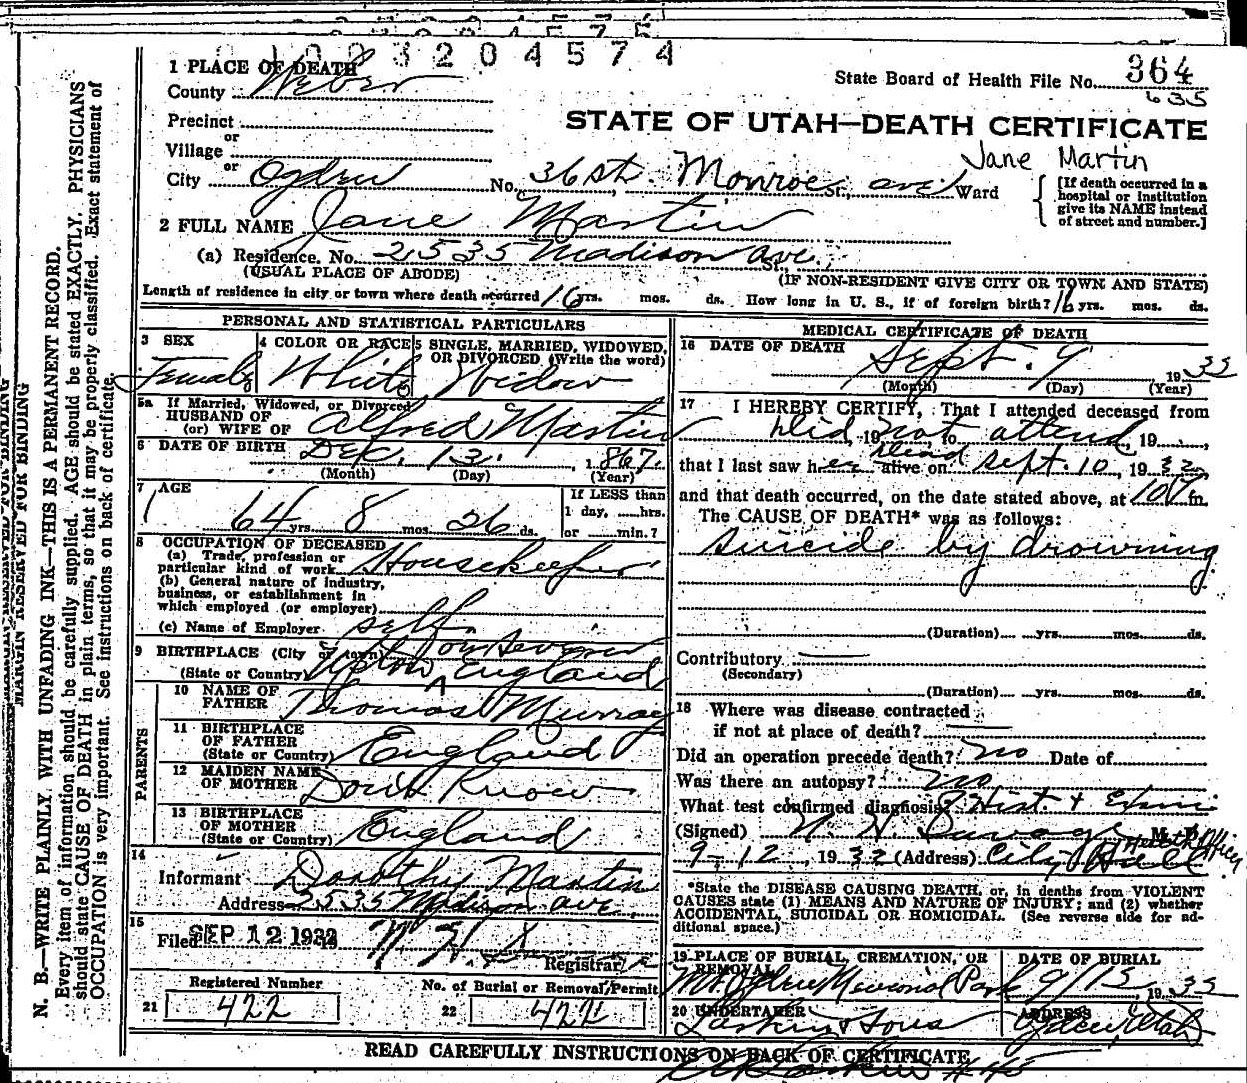 0100320 4574
1 PLACE OF DEATH
County Weber
State Board of Health File No. 364
635
Precinct
or
Village
or
STATE OF UTAH—DEATH CERTIFICATE
Jane Martin
City Ogden No. 36 St. Monroe St., ave Ward
[If death occurred in a
hospital or institution
give its NAME instead
of street and number.]
2 FULL NAME Jane Martin
(a) Residence. No. 2535 Madison ave. St.,
(USUAL PLACE OF ABODE) (IF NON-RESIDENT GIVE CITY OR TOWN AND STATE)
Length of residence in city or town where death occurred 16 yrs. mos. ds. How long in U. S., if of foreign birth? 16 yrs. mos. ds.
PERSONAL AND STATISTICAL PARTICULARS
3 SEX Female
4 COLOR OR RACE White
5 SINGLE, MARRIED, WIDOWED,
OR DIVORCED (Write the word)
Widow
5a If Married, Widowed, or Divorced
HUSBAND OF
(or) WIFE OF Alfred Martin
6 DATE OF BIRTH Dec. 13, 1867
(Month) (Day) (Year)
7 AGE
64 yrs. 8 mos. 26 ds.
If LESS than
1 day, hrs.
or min.?
8 OCCUPATION OF DECEASED
(a) Trade, profession or
particular kind of work Housekeeper
(b) General nature of industry,
business, or establishment in
which employed (or employer)
(c) Name of Employer self
9 BIRTHPLACE (City or town) Upton on Severn
(State or Country) England
PARENTS
10 NAME OF
FATHER Thomas Murray
11 BIRTHPLACE
OF FATHER
(State or Country) England
12 MAIDEN NAME
OF MOTHER Dont Know
13 BIRTHPLACE
OF MOTHER
(State or Country) England
14
Informant Dorothy Martin
Address 2535 Madison ave.
15
Filed SEP 12 1932 Registrar
Registered Number
21 422
No. of Burial or Removal Permit
22 422
MEDICAL CERTIFICATE OF DEATH
16 DATE OF DEATH
Sept. 9 1932
(Month) (Day) (Year)
17 I HEREBY CERTIFY, That I attended deceased from
Did, 19 not to attend, 19 ,
dead
that I last saw her alive on Sept. 10, 19 32,
and that death occurred, on the date stated above, at 10 P m.
The CAUSE OF DEATH* was as follows:
suicide by drowning
(Duration) yrs. mos. ds.
Contributory
(Secondary)
(Duration) yrs. mos. ds.
18 Where was disease contracted
if not at place of death?
Did an operation precede death? no Date of
Was there an autopsy? no
What test confirmed diagnosis? Hist. +
(Signed) M. D.
Health Officer
9-12, 1932 (Address) City Hall
*State the DISEASE CAUSING DEATH, or, in deaths from VIOLENT
CAUSES state (1) MEANS AND NATURE OF INJURY; and (2) whether
ACCIDENTAL, SUICIDAL OR HOMICIDAL. (See reverse side for ad-
ditional space.)
19 PLACE OF BURIAL, CREMATION, OR
REMOVAL
Mt. Ogden Memorial Park
DATE OF BURIAL
9/13 1932
20 UNDERTAKER
Larkin & Sons
ADDRESS
Ogden Utah
READ CAREFULLY INSTRUCTIONS ON BACK OF CERTIFICATE
Larkin #45
MARGIN RESERVED FOR BINDING
N. B.—WRITE PLAINLY, WITH UNFADING INK—THIS IS A PERMANENT RECORD.
Every item of information should be carefully supplied. AGE should be stated EXACTLY. PHYSICIANS
should state CAUSE OF DEATH in plain terms, so that it may be properly classified. Exact statement of
OCCUPATION is very important. See instructions on back of certificate.